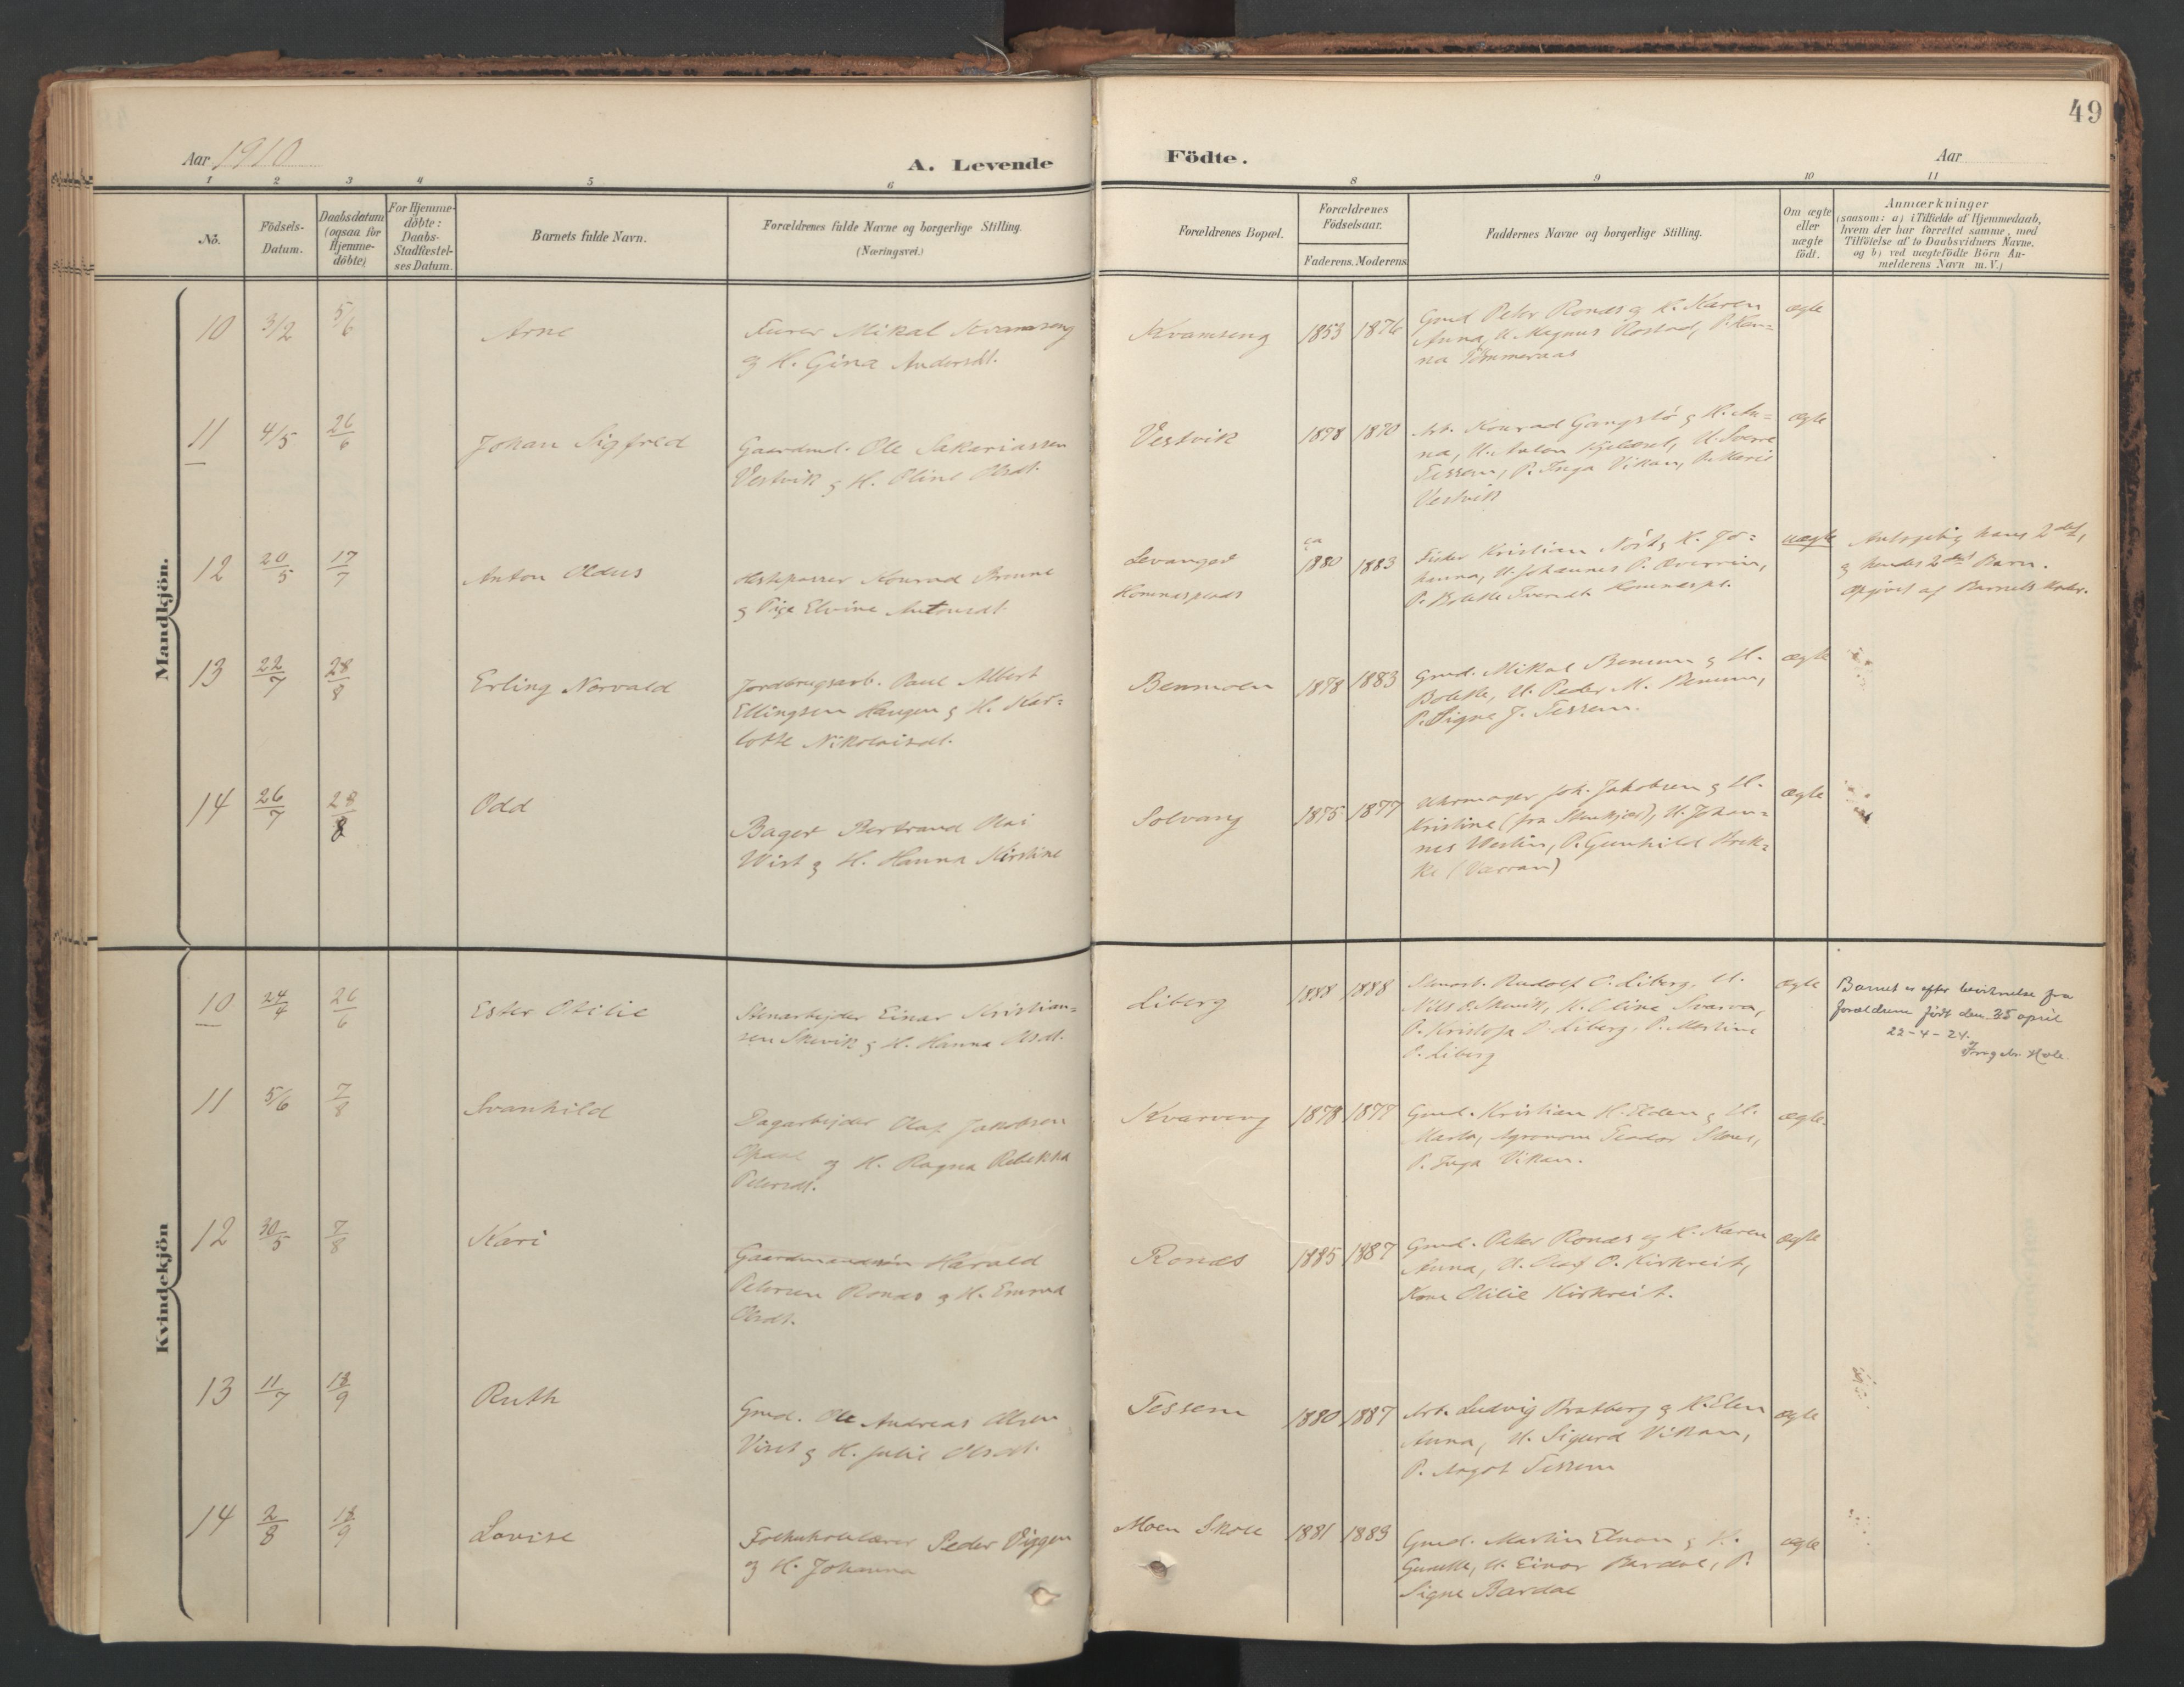 49
Aar 1910
A. Levende
Födte.
Aar
1 2 3 4 5 6 8 9 10 11
No.
Födsels-Datum.
Daabsdatum (ogsaa for Hjemme-döbte)
For Hjemme-döbte: Daabs-Stadfæstel-ses Datum.
Barnets fulde Navn.
Forældrenes fulde Navne og borgerlige Stilling.
(Næringsvei.)
Forældrenes Bopæl.
Forældrenes Födselsaar.
Faderens. Moderens.
Faddernes Navne og borgerlige Stilling.
Om ægte eller uægte födt.
Anmærkninger
(saasom: a) i Tilfælde af Hjemmedaab,
hvem der har forrettet samme, med
Tilföielse af to Daabsvidners Navne.
og b) ved uægtefödte Börn An-
melderens Navn m. V.)
Mandkjön.
10 3/2 5/6 Arne
Mikal Kvamseng
og H. Gina Andersdt.
Kvamseng 1853 1876
Gmd. Peter Ronæs og H. Karen
Anna, U. Magnus Rostad, P. Han-
na Tömmeraas
ægte
11 4/5 26/6 Johan Sigfred
Gaardmd. Ole Sakariassen
Vestvik og H. Oline Olsdt.
Vestvik 1878 1870
Arb. Konrad Gangstö og H. An-
na, U. Anton, U. Sverre
Tessem, P. Inga Vikan, P. Marie
Vestvik
ægte
12 20/5 17/7 Anton Oldus
Hestepasser Konrad
og Pige Elvine Antonsdt.
Levanger
Komnæsplads
ca 1880 1883
Fisker Kristian H. Jo-
hanna, U. Johannes P. Overvin,
P. Bolette Komnæspl.
uægte
Antagelig hans 2det,
og hendes 2det Barn.
Opgivet af Barnets Moder.
13 22/7 28/8 Erling Norvald
Jordbrugsarb. Paul Albert
Ellingsen Haugen og H. Kar-
lotte Nikolaisdt.
Benmoen 1878 1883
Gmd. Mikal Benum og H.
Bolette, U. Peder M. Benum,
P. Signe J. Tessem.
ægte
14 26/7 28/8 Odd
Bager Bertrand Olai
Wist og H. Hanna Kirstine
Solvang 1875 1877
Uhrmager Joh. Jakobsen og H.
Kristine (fra Stenkjær), U. Johan-
nes Westin, P. Gunhild Brek-
ke (Værran)
ægte
Kvindekjön
10 24/4 26/6 Ester Otilie
Stenarbejder Einar Kristian-
sen Skevik og H. Hanna Olsdt.
Liberg 1888 1888
Stenarb. Rudolf O. Liberg, U.
Nils O. Skevik, K. Oline Svarva,
P. Kristofa O. Liberg, P. Martine
O. Liberg
ægte
Barnet er efter bevitnelse fra
forældrene født den 25 april
22-4-24.
11 5/6 7/8 Svanhild
Dagarbejder Olaf Jakobsen
Opaal og H. Ragna Rebekka
Petersdt.
Kvarveng 1878 1877
Gmd. Kristian H. Elden og H.
Marta, Agronom Teodor,
P. Inga Vikan.
ægte.
12 30/5 7/8 Kari
Gaardmandsön Harald
Petersen Ronæs og H.
Olsdt.
Ronæs 1885 1887
Gmd. Peter Ronæs og H. Karen
Anna, U. Olaf O. Kirkreit,
Kone Otilie Kirkreit.
ægte
13 11/7 18/9 Ruth
Gmd. Ole Andreas Olsen
Viset og H. Julie Olsdt.
Tessem 1880 1887
Arb. Ludvig Bratberg og H. Elen
Anna, U. Sigurd Vikan,
P. Argot Tessem
ægte
14 2/8 18/9 Lovise
Folkeskolelærer Peder Viggen
og H. Johanna
Moen Skole 1881 1883
Gmd. Martin Elnan og H.
Gunelle, U. Einar Bardal, P.
Signe Bardal
ægte